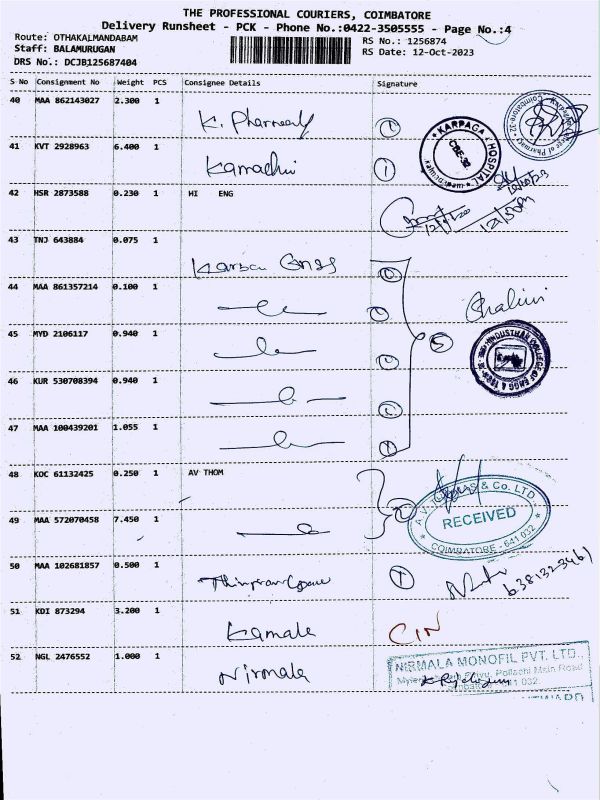 THE PROFESSIONAL COURIERS, COIMBATORE
Delivery Runsheet - PCK - Phone No.:0422-3505555 - Page No.:4
Route: OTHAKALMANDABAM
RS No.: 1256874
Staff: BALAMURUGAN
RS Date: 12-Oct-2023
DRS No.: DCJB125687404
S No Consignment No Weight PCS Consignee Details Signature
40 MAA 862143027 2.300 1 K. Pharmacy 1
41 KVT 2928963 6.400 1 Kamachi 1
KARPAGA HOSPITAL
CBE-32
42 HSR 2873588 0.230 1 HI ENG
43 TNJ 643884 0.075 1
44 MAA 861357214 0.100 1 Shalini
45 MYD 2106117 0.940 1 5
HINDUSTHAN COLLEGE OF ENGG & TECH
46 KUR 530708394 0.940 1
47 MAA 100439201 1.055 1
48 KOC 61132425 0.250 1 AV THOM 2
& Co. LTD.
RECEIVED
COIMBATORE - 641 032
49 MAA 572070458 7.450 1
50 MAA 102681857 0.500 1 1
51 KDI 873294 3.200 1 Kamala CIN
52 NGL 2476552 1.000 1 Nirmala
NIRMALA MONOFIL PVT. LTD.,
Pollachi Main Road